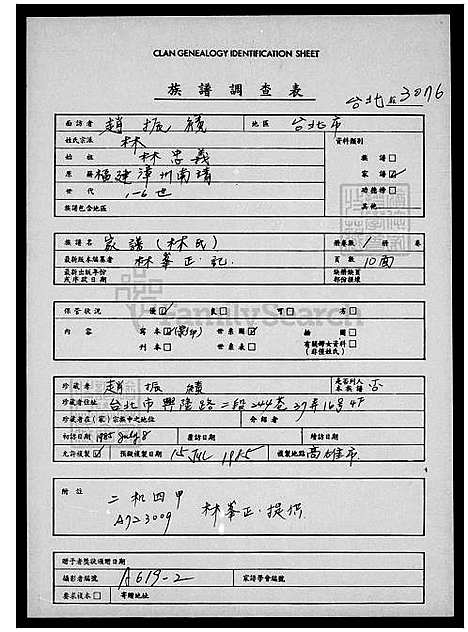 CLAN GENEALOGY IDENTIFICATION SHEET
族譜調查表
台北 3076
面訪者 趙振績 地區 台北市
姓氏宗派 林 資料類別
始祖 林忠義 族譜□
原籍 福建漳州南靖 家譜☑
世代 1-6世 功德榜□
族譜包含地區 其他□
族譜名 家譜(林氏) 冊卷數 1 冊 卷
最新版本編纂者 林峯正記 頁數 10面
最新出版年份或序政日期 缺冊缺頁部份損壞
保管狀況 優☑ 良□ 可□ 劣□
內容 寫本☑(影印) 世系圖☑ 繪圖□
刊本□ 世系表□ 有關婦女資料(非僅姓氏)□
珍藏者 趙振績 是否列入本族譜 否
珍藏者住址 台北市興隆路二段244巷37弄16号4F
珍藏者在(家)宗族中之地位 介紹者
初訪日期 1985 July 8 覆訪日期 續訪日期
允許複製☑ 預擬複製日期 15 JUL 1985 複製地點 高雄市
附註 二和四甲
A723009 林峯正提供
贈予者獎狀頒贈日期
攝影者編號 A619-2 家譜學會編號
要求複本□ 寄贈地址
FamilySearch